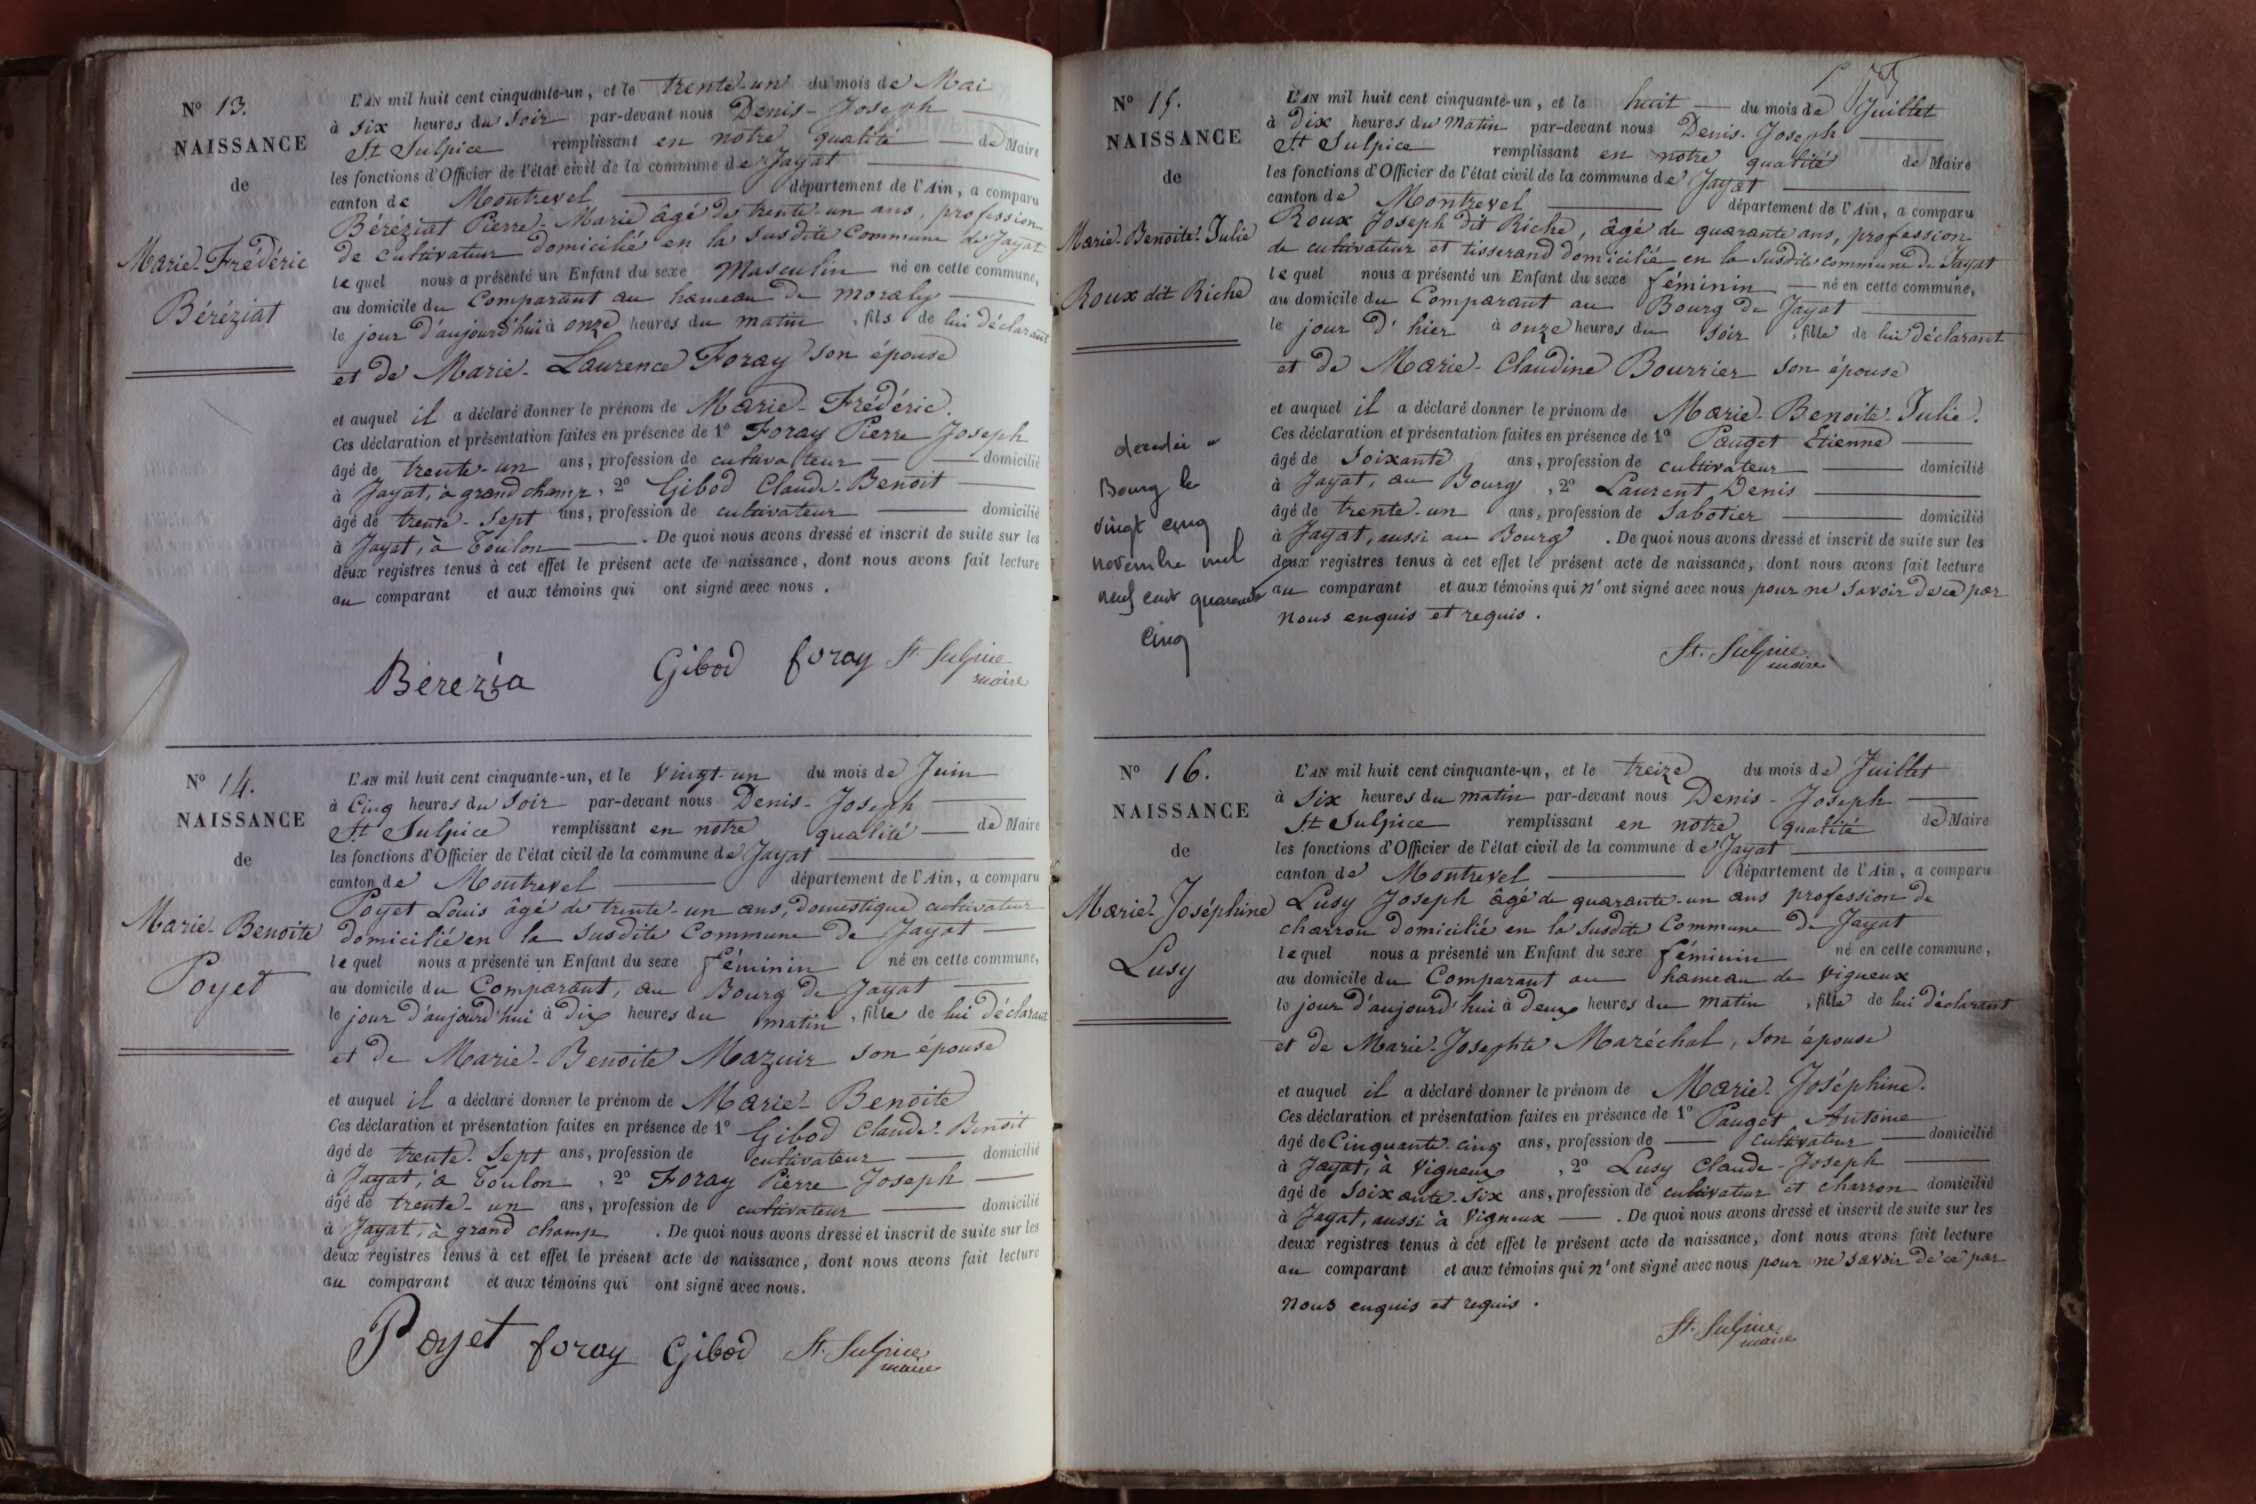 N° 13.
NAISSANCE
de
Marie-Frédéric
Béréziat
L'AN mil huit cent cinquante-un, et le trente-un du mois de Mai
à six heures du soir par-devant nous Denis-Joseph
St Sulpice remplissant en notre qualité de Maire
les fonctions d'Officier de l'état civil de la commune de Jayat
canton de Montrevel département de l'Ain, a comparu
Béréziat Pierre-Marie âgé de trente-un ans, profession
de cultivateur domicilié en la susdite Commune de Jayat
lequel nous a présenté un Enfant du sexe Masculin né en cette commune,
au domicile du Comparant au hameau de moraly
le jour d'aujourd'hui à onze heures du matin, fils de lui déclarant
et de Marie-Laurence Foray son épouse
et auquel il a déclaré donner le prénom de Marie-Frédéric.
Ces déclaration et présentation faites en présence de 1° Foray Pierre Joseph
âgé de trente-un ans, profession de cultivateur domicilié
à Jayat, à grand champ, 2° Gibod Claude-Benoit
âgé de trente-sept ans, profession de cultivateur domicilié
à Jayat, à Toulon. De quoi nous avons dressé et inscrit de suite sur les
deux registres tenus à cet effet le présent acte de naissance, dont nous avons fait lecture
au comparant et aux témoins qui ont signé avec nous.
Berezia Gibod foray St. Sulpice
maire
N° 14.
NAISSANCE
de
Marie-Benoite
Poyet
L'AN mil huit cent cinquante-un, et le vingt-un du mois de Juin
à Cinq heures du soir par-devant nous Denis-Joseph
St Sulpice remplissant en notre qualité de Maire
les fonctions d'Officier de l'état civil de la commune de Jayat
canton de Montrevel département de l'Ain, a comparu
Poyet Louis âgé de trente-un ans, domestique cultivateur
domicilié en la susdite Commune de Jayat
lequel nous a présenté un Enfant du sexe féminin né en cette commune,
au domicile du Comparant, au Bourg de Jayat
le jour d'aujourd'hui à dix heures du matin, fille de lui déclarant
et de Marie-Benoite Mazuir son épouse
et auquel il a déclaré donner le prénom de Marie-Benoite
Ces déclaration et présentation faites en présence de 1° Gibod Claude-Benoit
âgé de trente-sept ans, profession de cultivateur domicilié
à Jayat, à Toulon, 2° Foray Pierre Joseph
âgé de trente-un ans, profession de cultivateur domicilié
à Jayat, à grand champ. De quoi nous avons dressé et inscrit de suite sur les
deux registres tenus à cet effet le présent acte de naissance, dont nous avons fait lecture
au comparant et aux témoins qui ont signé avec nous.
Poyet foray Gibod St. Sulpice
maire
N° 15.
NAISSANCE
de
Marie-Benoite-Julie
Roux dit Riche
L'AN mil huit cent cinquante-un, et le huit du mois de Juillet
à Dix heures du matin par-devant nous Denis-Joseph
St Sulpice remplissant en notre qualité de Maire
les fonctions d'Officier de l'état civil de la commune de Jayat
canton de Montrevel département de l'Ain, a comparu
Roux Joseph dit Riche, âgé de quarante ans, profession
de cultivateur et tisserand domicilié en la susdite commune de Jayat
lequel nous a présenté un Enfant du sexe féminin né en cette commune,
au domicile du Comparant au Bourg de Jayat
le jour d'hier à onze heures du soir, fille de lui déclarant
et de Marie-Claudine Bourrier son épouse
et auquel il a déclaré donner le prénom de Marie-Benoite-Julie.
Ces déclaration et présentation faites en présence de 1° Pauget Etienne
âgé de soixante ans, profession de cultivateur domicilié
à Jayat, au Bourg, 2° Laurent Denis
âgé de trente-un ans, profession de sabotier domicilié
à Jayat, aussi au Bourg. De quoi nous avons dressé et inscrit de suite sur les
deux registres tenus à cet effet le présent acte de naissance, dont nous avons fait lecture
au comparant et aux témoins qui n'ont signé avec nous pour ne savoir de ce par
nous enquis et requis.
St. Sulpice
maire
décédée à
Bourg le
vingt cinq
novembre mil
neuf cent quarante
cinq
N° 16.
NAISSANCE
de
Marie-Joséphine
Lusy
L'AN mil huit cent cinquante-un, et le treize du mois de Juillet
à six heures du matin par-devant nous Denis-Joseph
St Sulpice remplissant en notre qualité de Maire
les fonctions d'Officier de l'état civil de la commune de Jayat
canton de Montrevel département de l'Ain, a comparu
Lusy Joseph âgé de quarante-un ans profession de
charron domicilié en la susdite Commune de Jayat
lequel nous a présenté un Enfant du sexe féminin né en cette commune,
au domicile du Comparant au hameau de Vigneux
le jour d'aujourd'hui à deux heures du matin, fille de lui déclarant
et de Marie-Josephte Maréchal, son épouse
et auquel il a déclaré donner le prénom de Marie-Joséphine.
Ces déclaration et présentation faites en présence de 1° Pauget Antoine
âgé de Cinquante-cinq ans, profession de cultivateur domicilié
à Jayat, à Vigneux, 2° Lusy Claude-Joseph
âgé de soixante-six ans, profession de cultivateur et charron domicilié
à Jayat, aussi à Vigneux. De quoi nous avons dressé et inscrit de suite sur les
deux registres tenus à cet effet le présent acte de naissance, dont nous avons fait lecture
au comparant et aux témoins qui n'ont signé avec nous pour ne savoir de ce par
nous enquis et requis.
St. Sulpice
maire